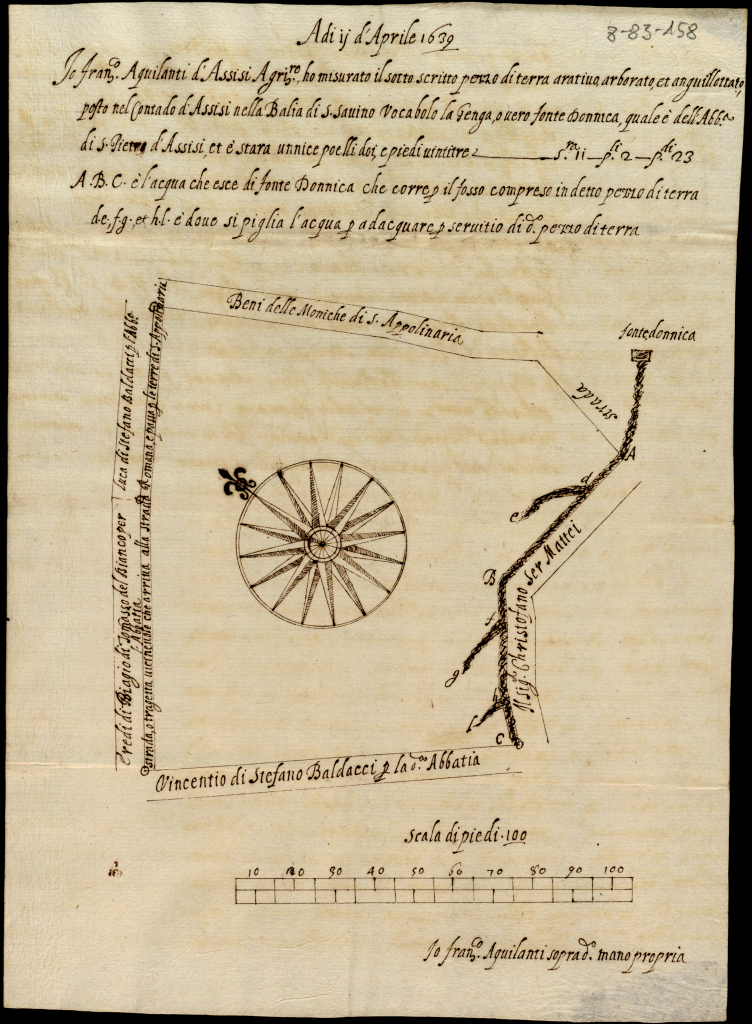 8-83-158
Adi ij d'Aprile 1639
Io Fran.co Aquilanti d'Assisi Agri.re, ho misurato il sotto scritto pezzo di terra arativa, arborato, et anguillottato,
posto nel Contado d'Assisi nella Balia di S. Savino Vocabolo la Genga, o vero fonte Donnica, quale è dell'Abb.a
di S. Pietro d'Assisi, et è stara unnice poelli doi, e piedi vintitre — s.ra 11 — p.li 2 — p.di 23
A.B.C. è l'acqua che esce di fonte Donnica che corre p il fosso compreso in detto pezzo di terra
d.e, f.g. et h.l. è dove si piglia l'acqua p adacquare p servitio di d.o pezzo di terra
Beni delle Moniche di S. Appolinaria
fonte donnica
strada
A
d
e
B
f
g
h
l
C
Il sig.r Christofano Ser Mattei
Luca di Stefano Baldacci p l'Abb.a
Eredi di Biagio di Tomasso del Bianco per
l'Abbatia
strada, o tragetta vicinchale che arriva alla strada Romana, e passa p le terre di S. Appolinaria
Vincentio di Stefano Baldacci p la d.a Abbatia
Scala di piedi. 100
10 20 30 40 50 60 70 80 90 100
Io Fran.co Aquilanti sopra d.o mano propria